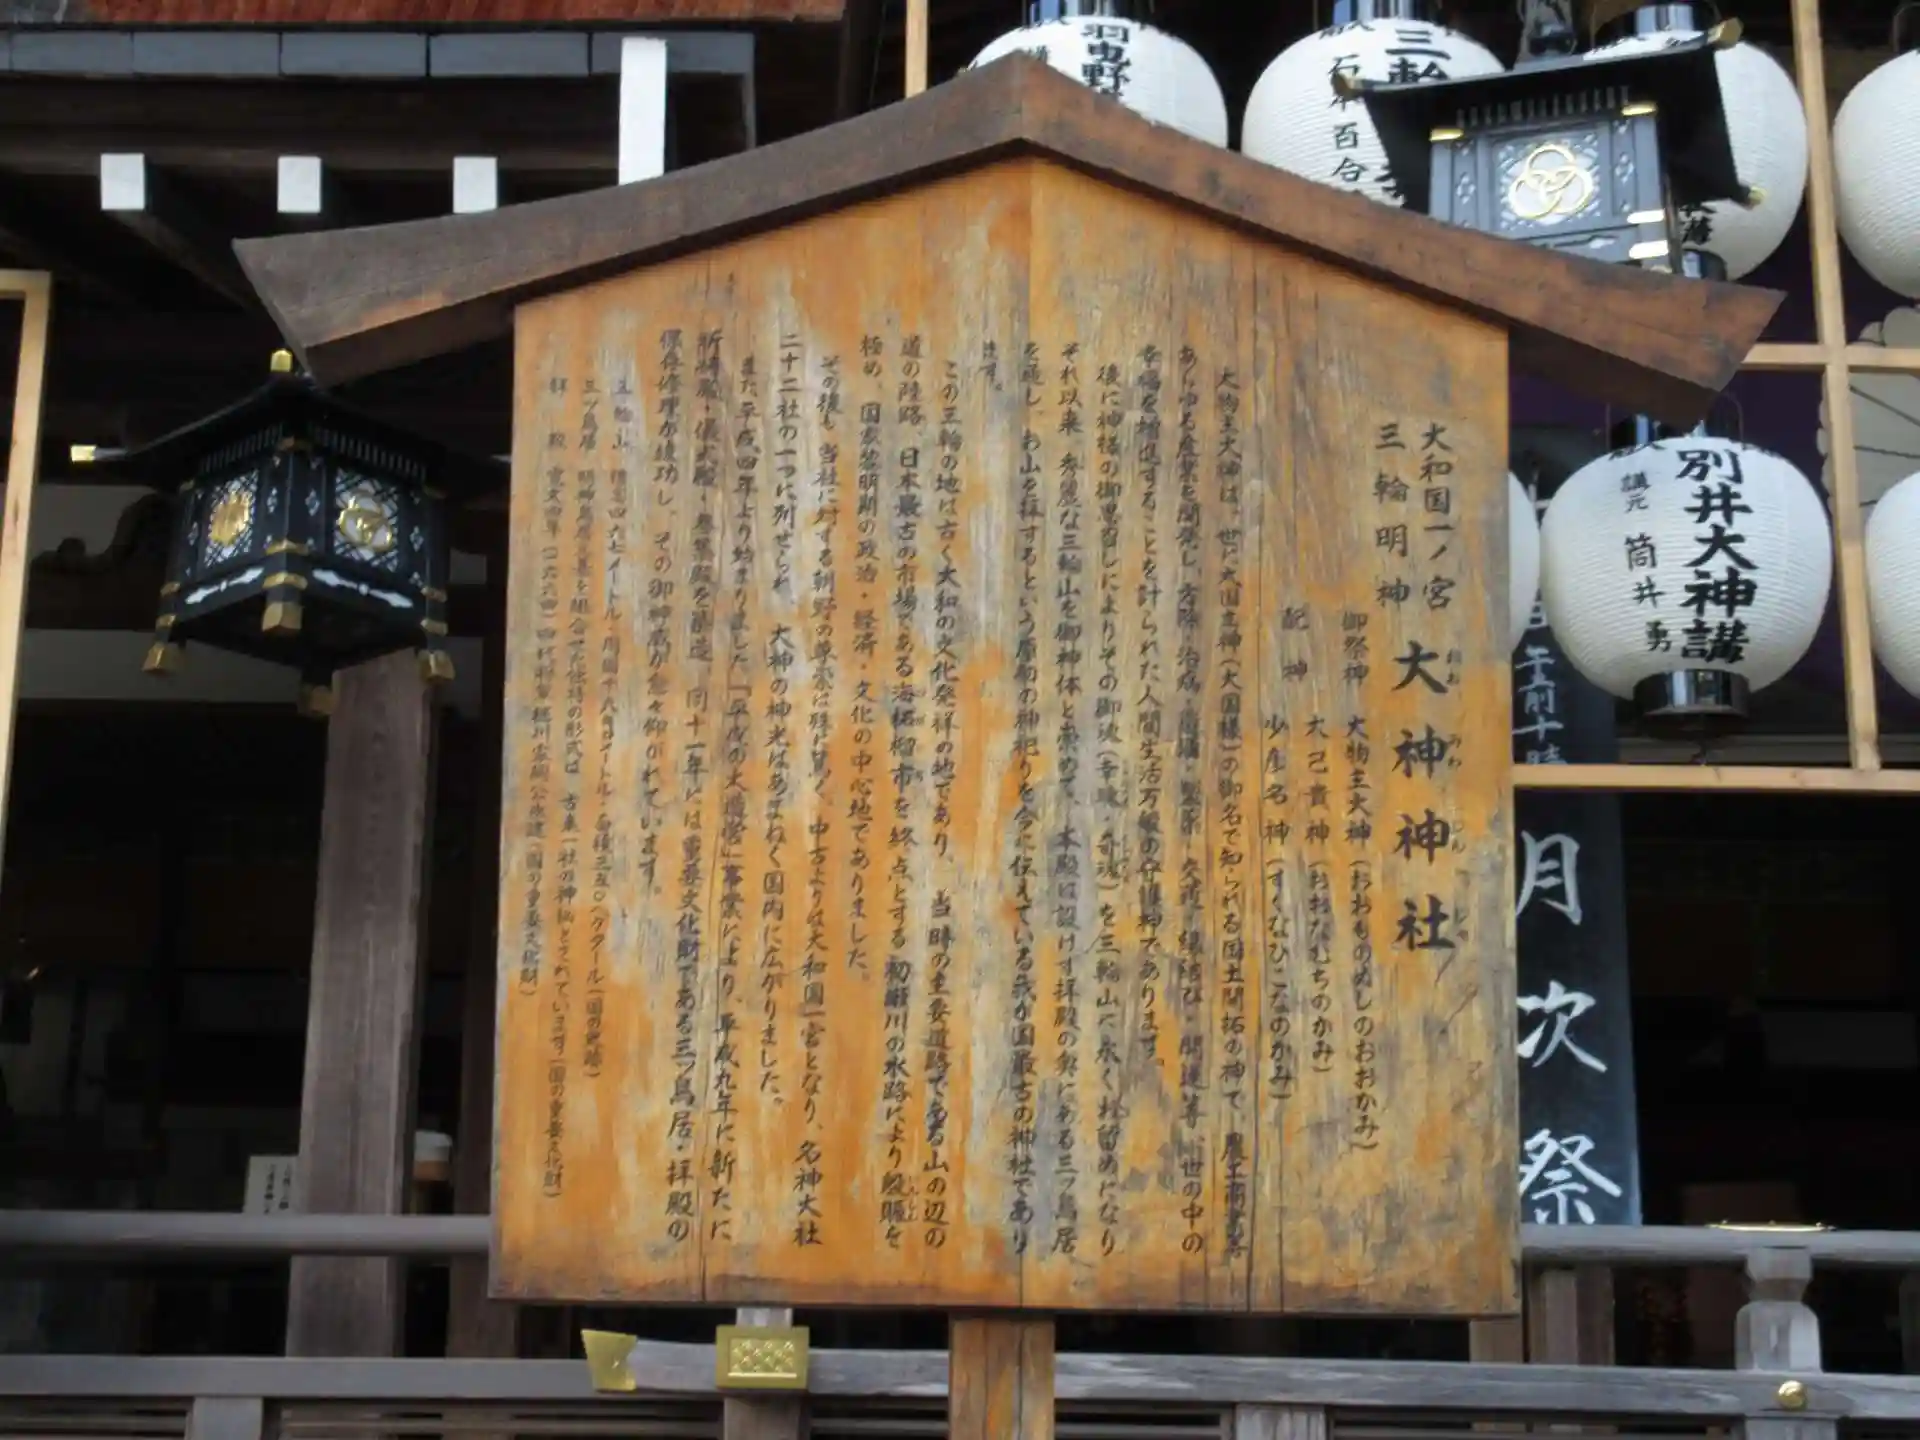 大和国一ノ宮
三輪明神
大神神社
おお みわ じん じゃ
御祭神 大物主大神(おおものぬしのおおかみ)
大己貴神(おおなむちのかみ)
配神
少彦名神(すくなひこなのかみ)
大物主大神は、世に大国主神(大国様)の御名で知られる国土開拓の神で、農工商業等
あらゆる産業を開発し、方除・治病・造酒・製薬・交通・縁結び・開運等、世の中の
幸福を増進することを計られた人間生活万般の守護神であります。
後に神様の御思召しによりその御魂(幸魂・奇魂)を三輪山に永く お留めになり
それ以来、秀麗な三輪山を御神体と崇めて、本殿は設けず拝殿の奥にある三ッ鳥居
を通し、お山を拝するという原初の神祀りを今に伝えている我が国最古の神社であり
ます。
この三輪の地は古く大和の文化発祥の地であり、当時の主要道路である山の辺の
道の陸路、日本最古の市場である海柘榴市を終点とする初瀬川の水路により殷賑を
極め、国家黎明期の政治・経済・文化の中心地でありました。
その後も当社に対する朝野の尊崇は殊に篤く、中古よりは大和国一宮となり、名神大社
二十二社の一つに列せられ、大神の神光はあまねく国内に広がりました。
また平成四年より始まりました「平成の大造営」事業により、平成九年に新たに
祈祷殿・儀式殿・参集殿を造営、同十一年には重要文化財である三ッ鳥居・拝殿の
保存修理が竣功し、その御神威が愈々仰がれています。
三輪山 標高四六七メートル・周囲十六キロメートル・面積三五〇ヘクタール(国の史跡)
三ッ鳥居 明神鳥居三基を組合せた独特の形式は、古来一社の神秘とされています(国の重要文化財)
拝殿 寛文四年(一六六四)四代将軍徳川家綱公再建(国の重要文化財)
羽曳野
三輪
石本百合
別井大神講
講元 筒井 勇
午前十時
月次祭